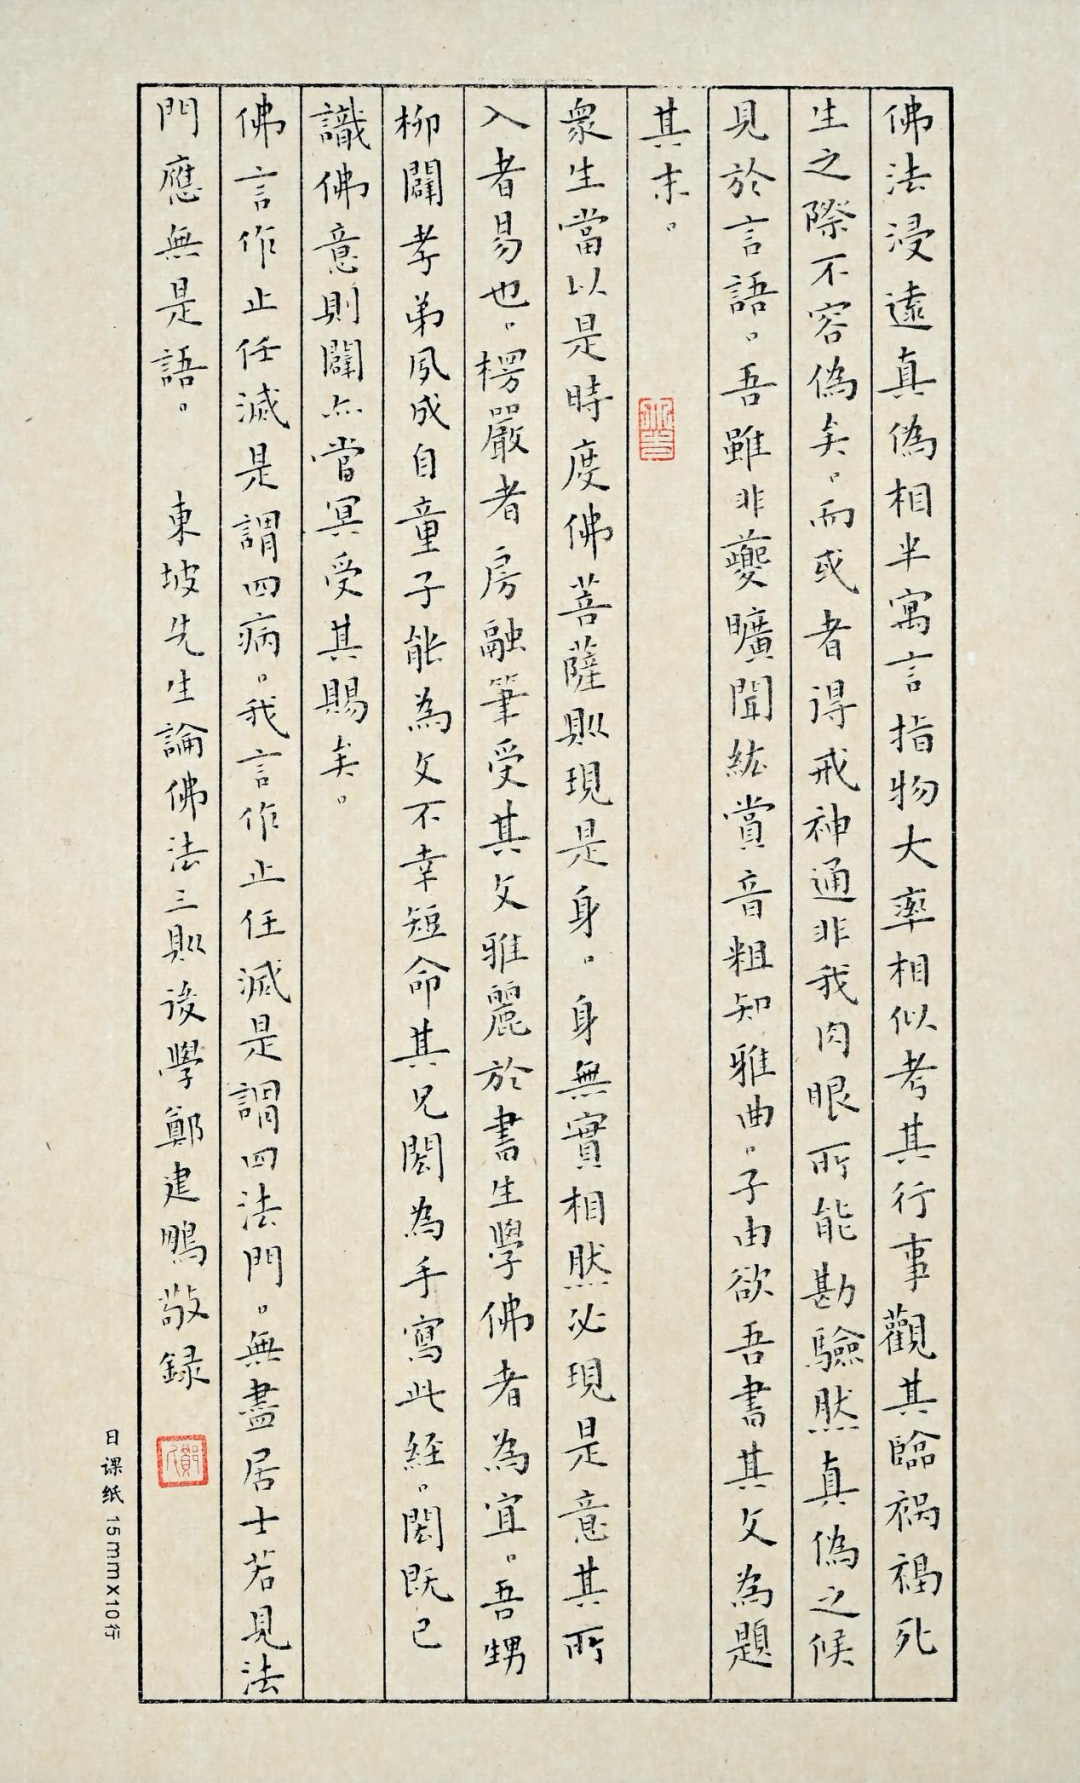 佛法浸遠真偽相半寓言指物大率相似考其行事觀其臨禍福死
生之際不容偽矣。而或者得戒神通非我肉眼所能勘驗然真偽之候
見於言語。吾雖非夔曠聞絃賞音粗知雅曲。子由欲吾書其文為題
其末。
衆生當以是時度佛菩薩則現是身。身無實相然必現是意其所
入者易也。楞嚴者房融筆受其文雅麗於書生學佛者為宜。吾甥
柳闢孝弟夙成自童子能為文不幸短命其兄閎為手寫此經。閎既已
識佛意則闢亦當冥受其賜矣。
佛言作止任滅是謂四病。我言作止任滅是謂四法門。無盡居士若見法
門應無是語。 東坡先生論佛法三則後學鄭建鴨敬録
日课纸15mmX10行